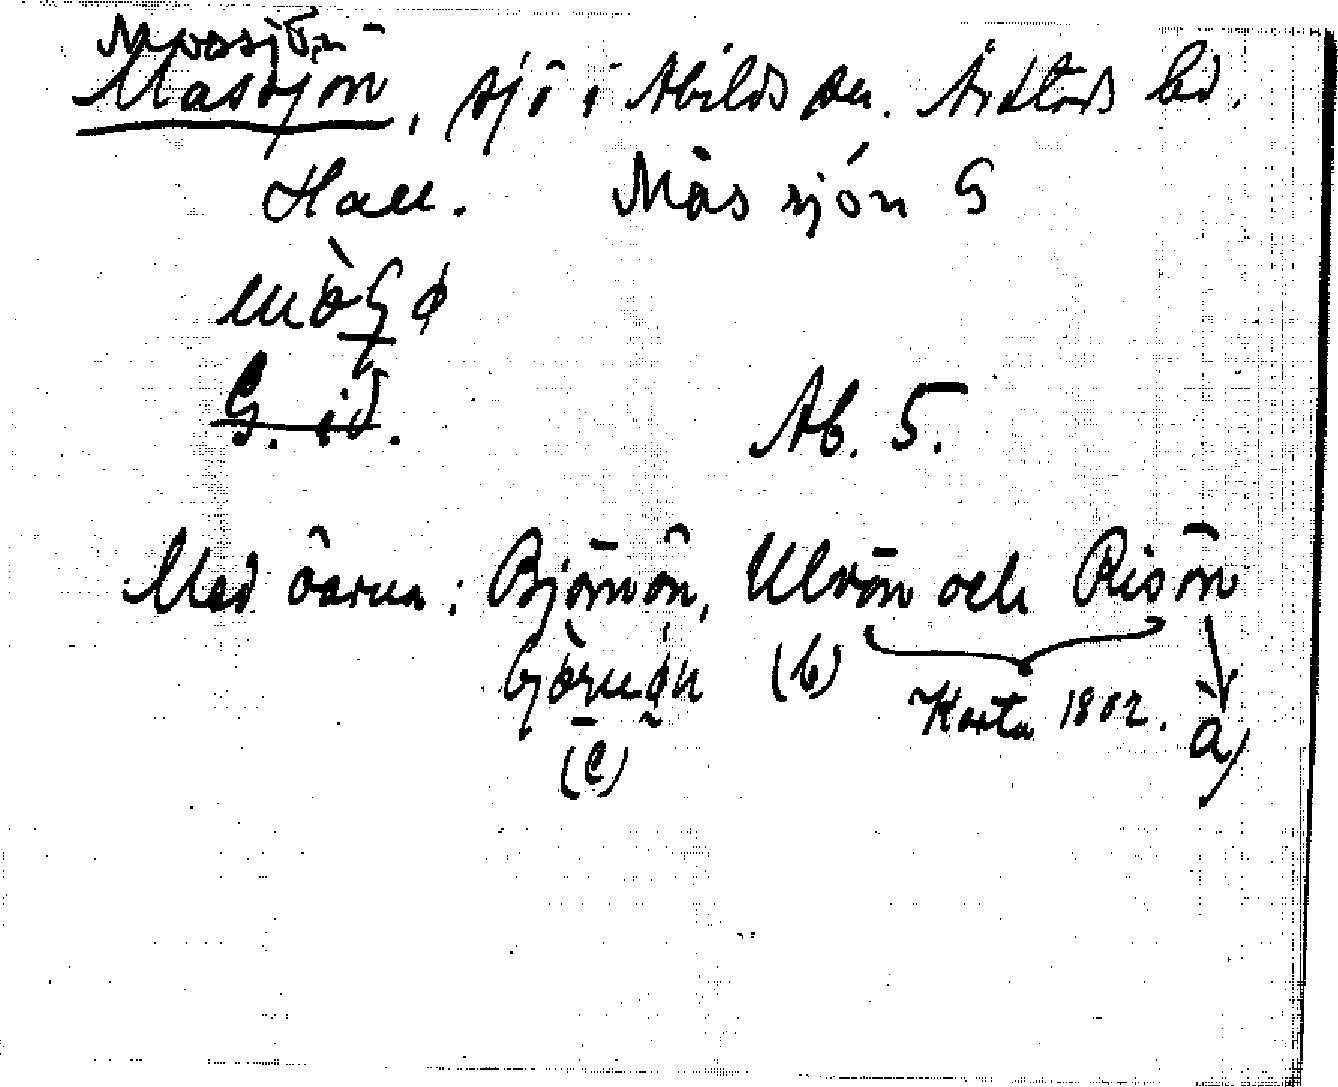 Mossjön
Massjön, sjö i Abilds sn. Årstads hd.
Hall. Mås sjön G
G. id.
Ab. 5.
Med öarna: Björnön, Ulvön och Risön
(b) Karta 1802. a)
(c)